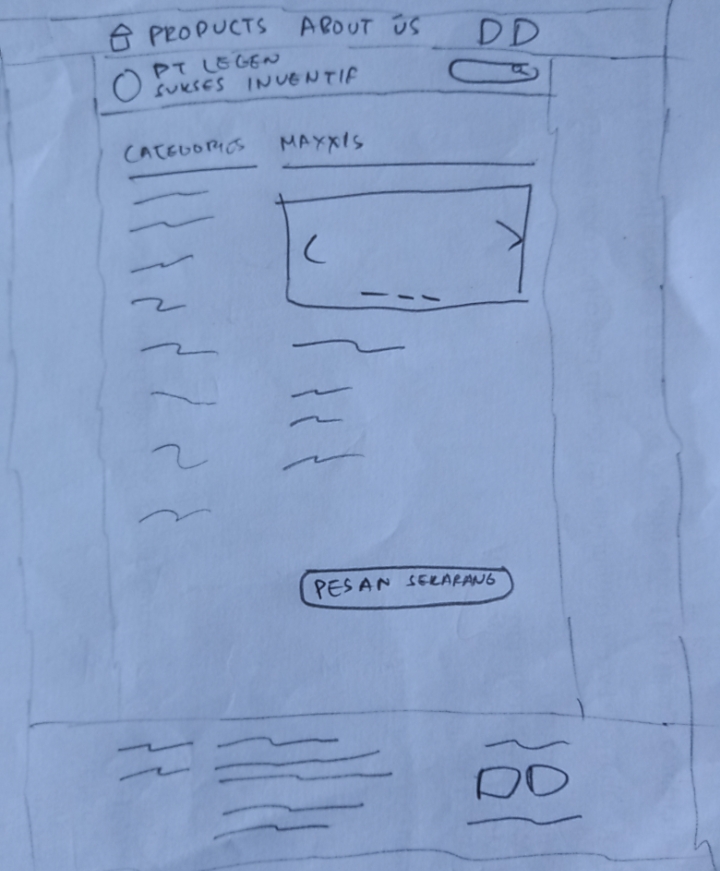 PRODUCTS ABOUT US
PT LEGEN
SUKSES INVENTIF
CATEGORIES MAXXIS
PESAN SEKARANG